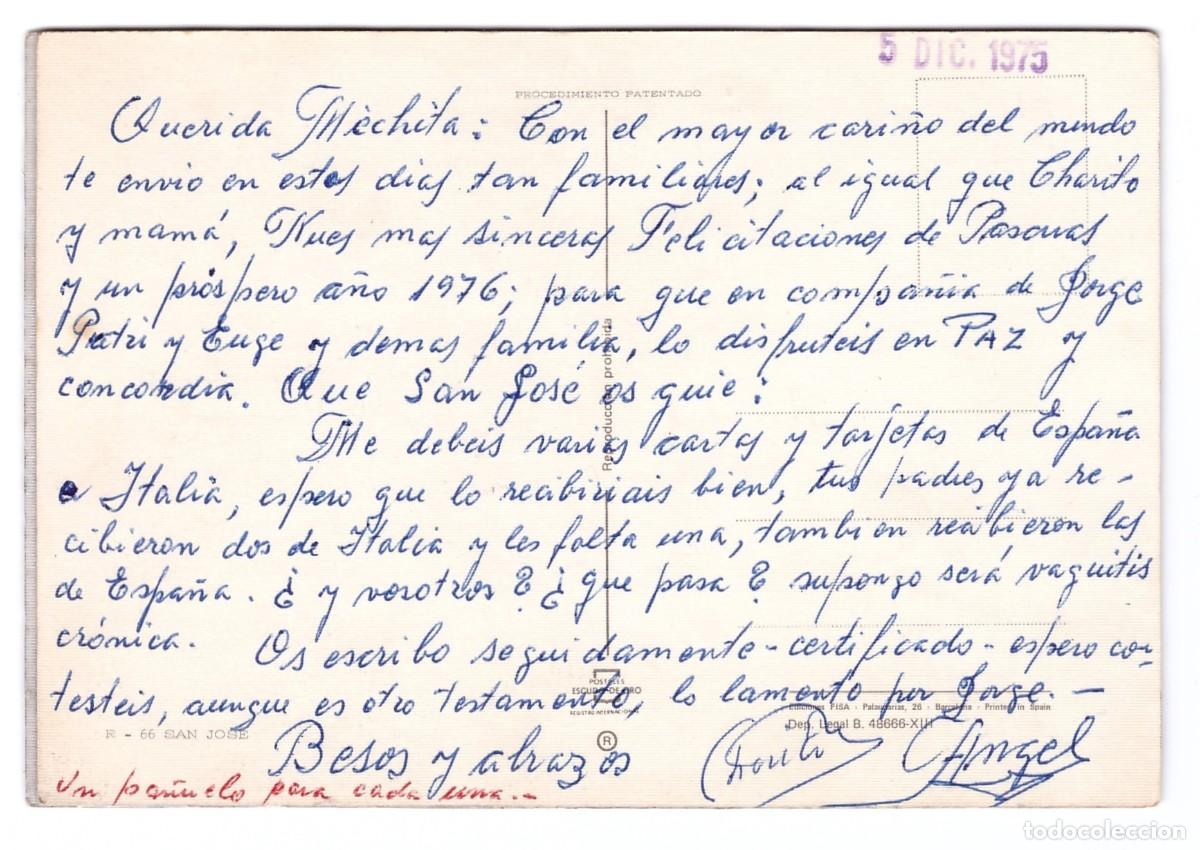 5 DIC. 1975
PROCEDIMIENTO PATENTADO
Querida Mèchita: Con el mayor cariño del mundo
te envio en estos dias tan familiares; al igual que Charito
y mamá, Nues mas sinceras Felicitaciones de Pascuas
y un próspero año 1976; para que en compañia de Jorge
Patri y Euge y demas familia, lo disfruteis en PAZ y
concordia. Que San José os guie:
Me debeis varias cartas y tarjetas de España
e Italia, espero que lo recibiriais bien, tus padres ya re-
cibieron dos de Italia y les falta una, tambien recibieron las
de España. ¿ y vosotros ? ¿ que pasa ? supongo será vaguitis
crónica. Os escribo seguidamente - certificado - espero con-
testeis, aunque es otro testamento, lo lamento por Jorge. -
Besos y abrazos
Angel
Un pañuelo para cada una.-
Reproducción prohibida
POSTALES
ESCUDO DE ORO
REGISTRO INTERNACIONAL
R
Ediciones FISA - Palaudarias, 26 - Barcelona - Printed in Spain
Dep. Legal B. 48666-XIII
R - 66 SAN JOSE
todocoleccion